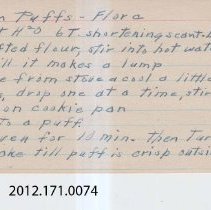 n Puffs - Flora
t H²O 6T. shortening scant.
fted flour, stir into hot wat
ill it makes a lump
e from stove a cool a little
, drop one at a time, stir
on cookie pan
ts a puff.
ven for 10 min. then Tur
oke till puff is crisp outsi
2012.171.0074